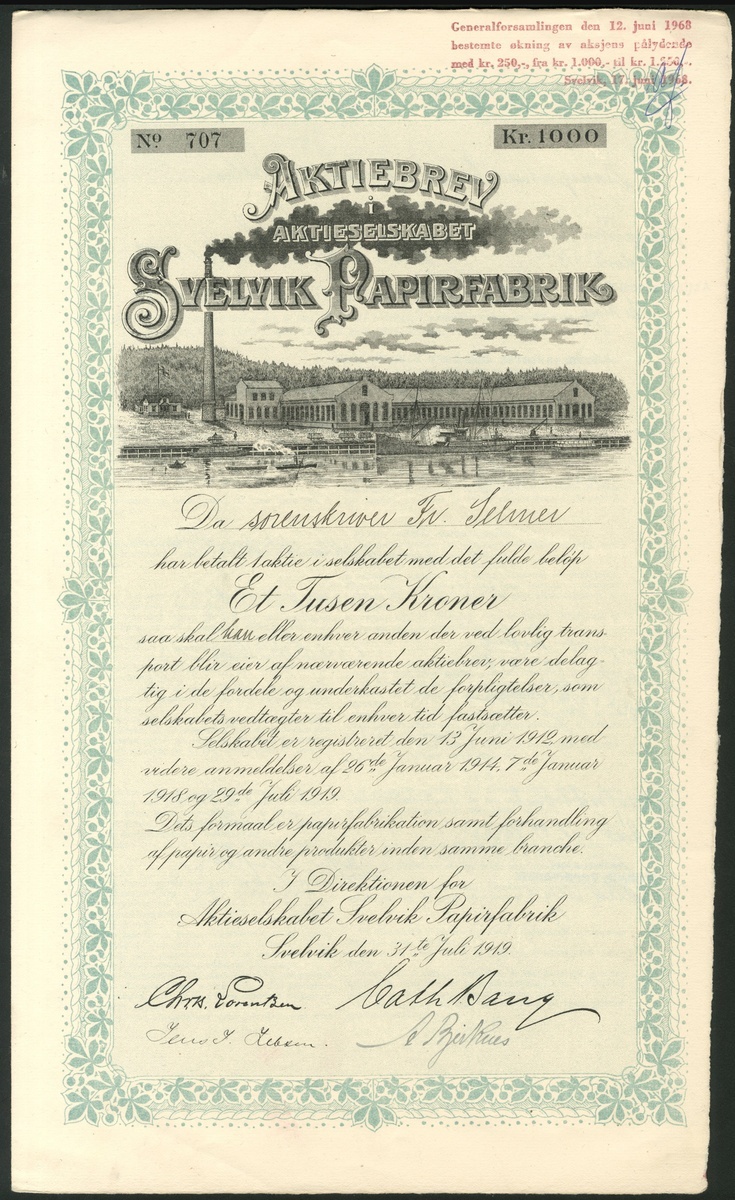 Generalforsamlingen den 12. juni 1968
bestemte økning av aksjens pålydende
med kr. 250,-, fra kr. 1.000,- til kr. 1.250,-.
Svelvik, 17. juni 1968.
No 707
Kr. 1000
AKTIEBREV
i
AKTIESELSKABET
SVELVIK PAPIRFABRIK
Da sorenskriver Fr. Selmer
har betalt 1 aktie i selskabet med det fulde beløp
Et Tusen Kroner
saa skal han eller enhver anden der ved lovlig trans-
port blir eier af nærværende aktiebrev, være delag-
tig i de fordele og underkastet de forpligtelser, som
selskabets vedtægter til enhver tid fastsætter.
Selskabet er registreret den 13 Juni 1912, med
videre anmeldelser af 26de Januar 1914, 7de Januar
1918 og 29de Juli 1919.
Dets formaal er papirfabrikation samt forhandling
af papir og andre produkter inden samme branche.
I Direktionen for
Aktieselskabet Svelvik Papirfabrik
Svelvik den 31te Juli 1919.
Chrs. Lorentzen Cath Bang
Jens J. A Bjerknes